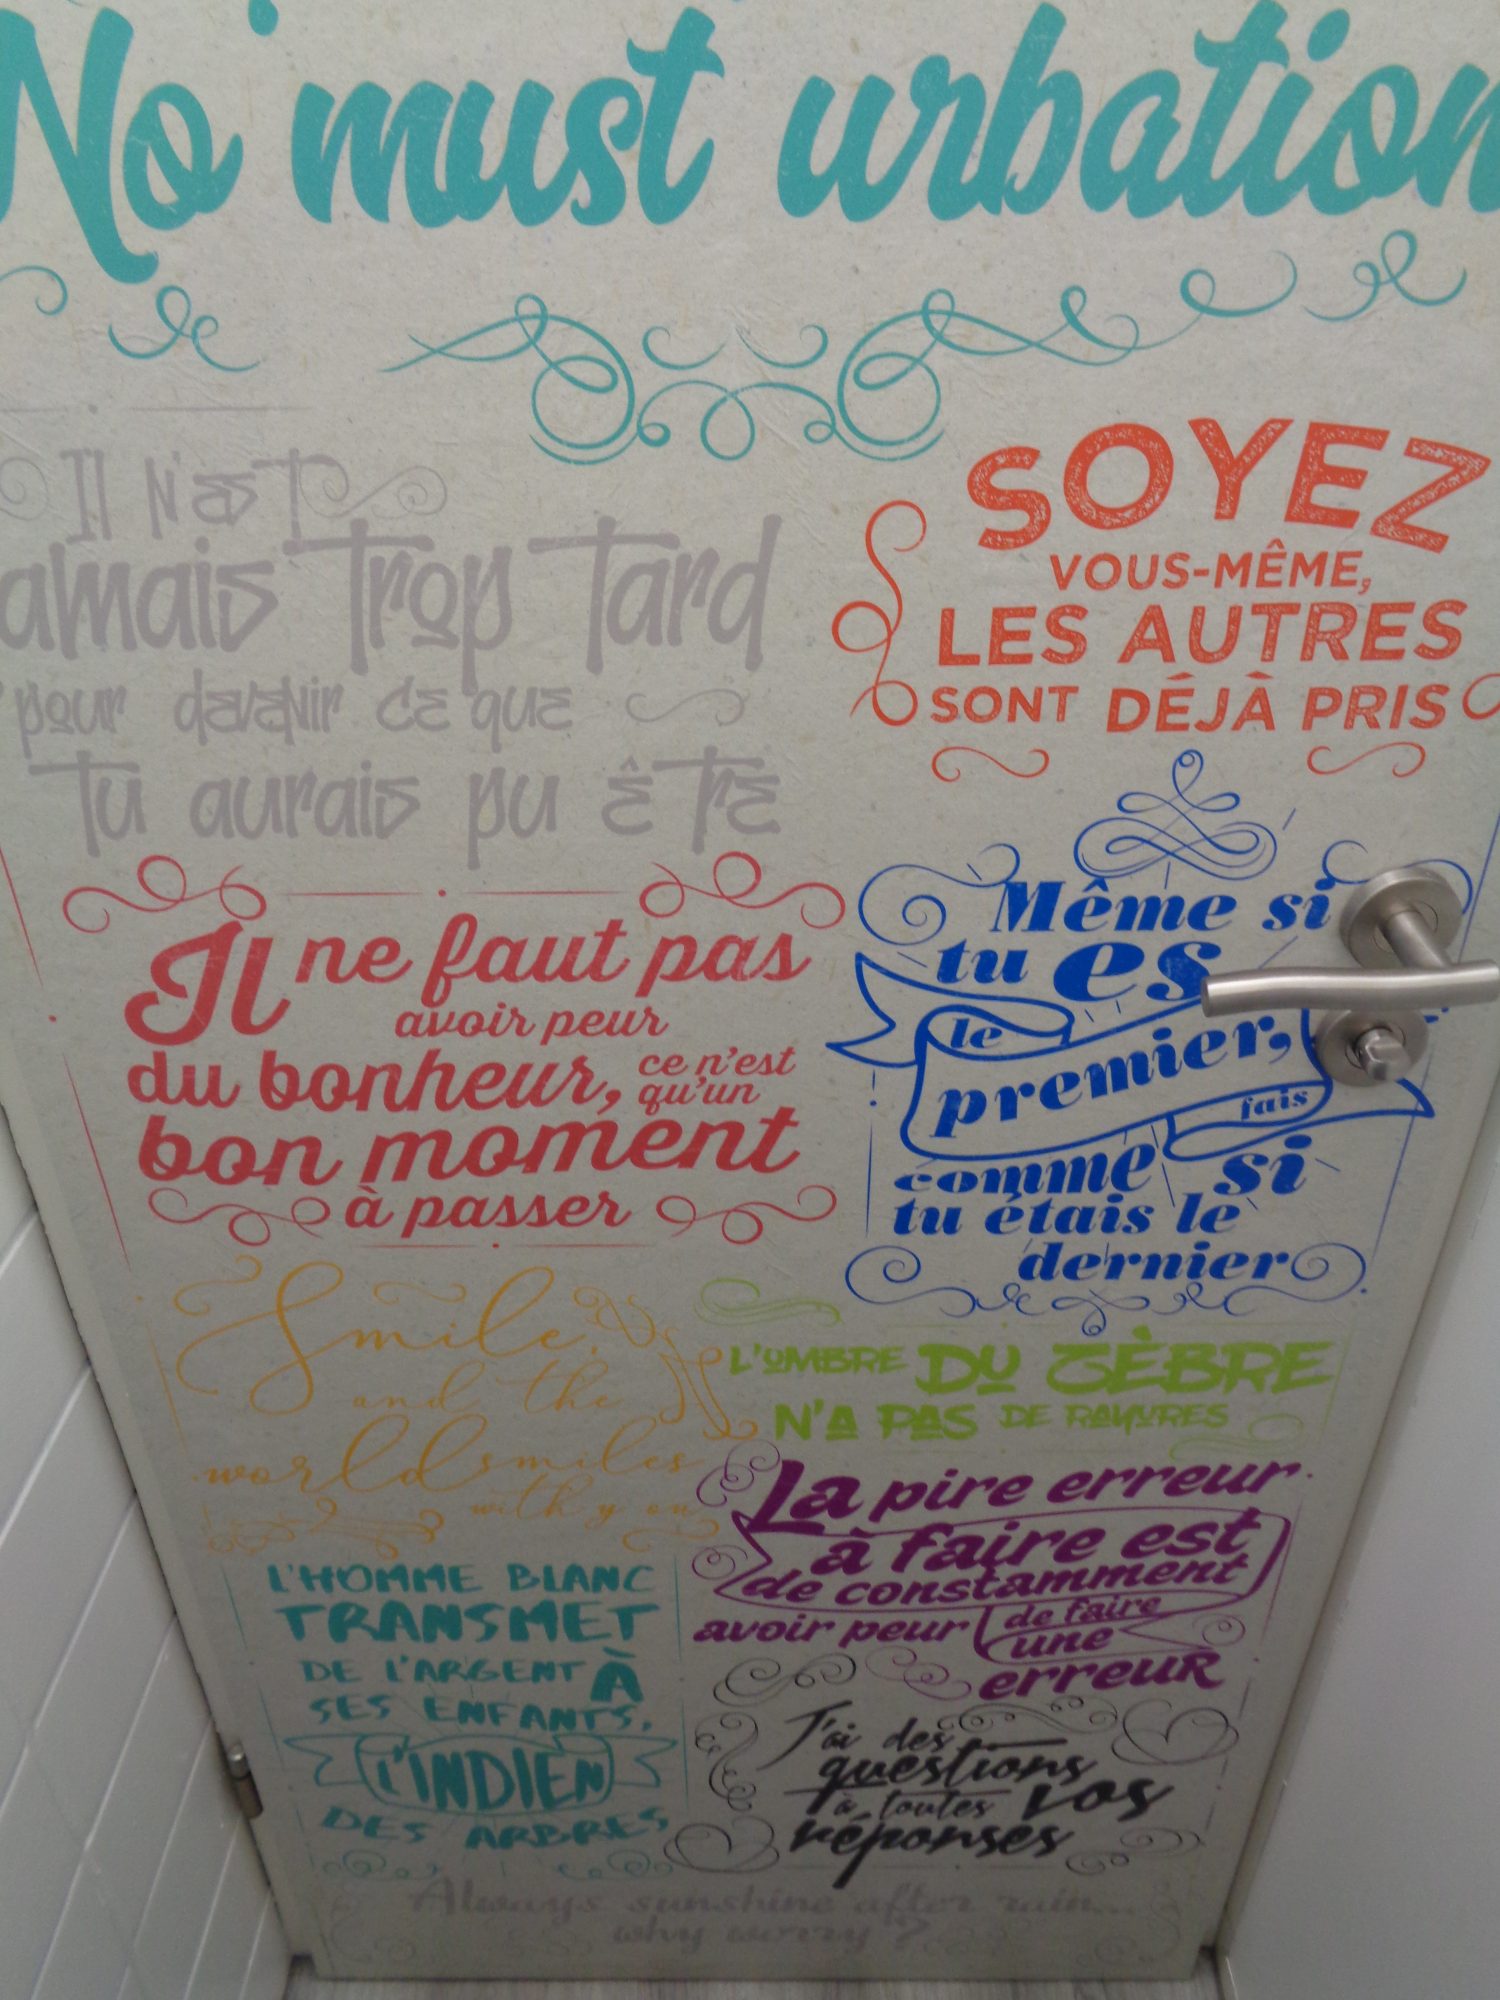 No must urbation
Il n'est
amais trop tard
pour devenir ce que
tu aurais pu être
SOYEZ
VOUS-MÊME,
LES AUTRES
SONT DÉJÀ PRIS
Il ne faut pas
avoir peur
du bonheur, ce n'est
qu'un
bon moment
à passer
Même si
tu es
le
premier,
fais
comme si
tu étais le
dernier
Smile
and the
world smiles
with you
L'OMBRE DU ZÈBRE
N'A PAS DE RAYURES
La pire erreur
à faire est
de constamment
avoir peur de faire
une
erreur
L'HOMME BLANC
TRANSMET
DE L'ARGENT À
SES ENFANTS,
L'INDIEN
DES ARBRES
J'ai des
questions
à toutes vos
réponses
Always sunshine after rain...
why worry ?